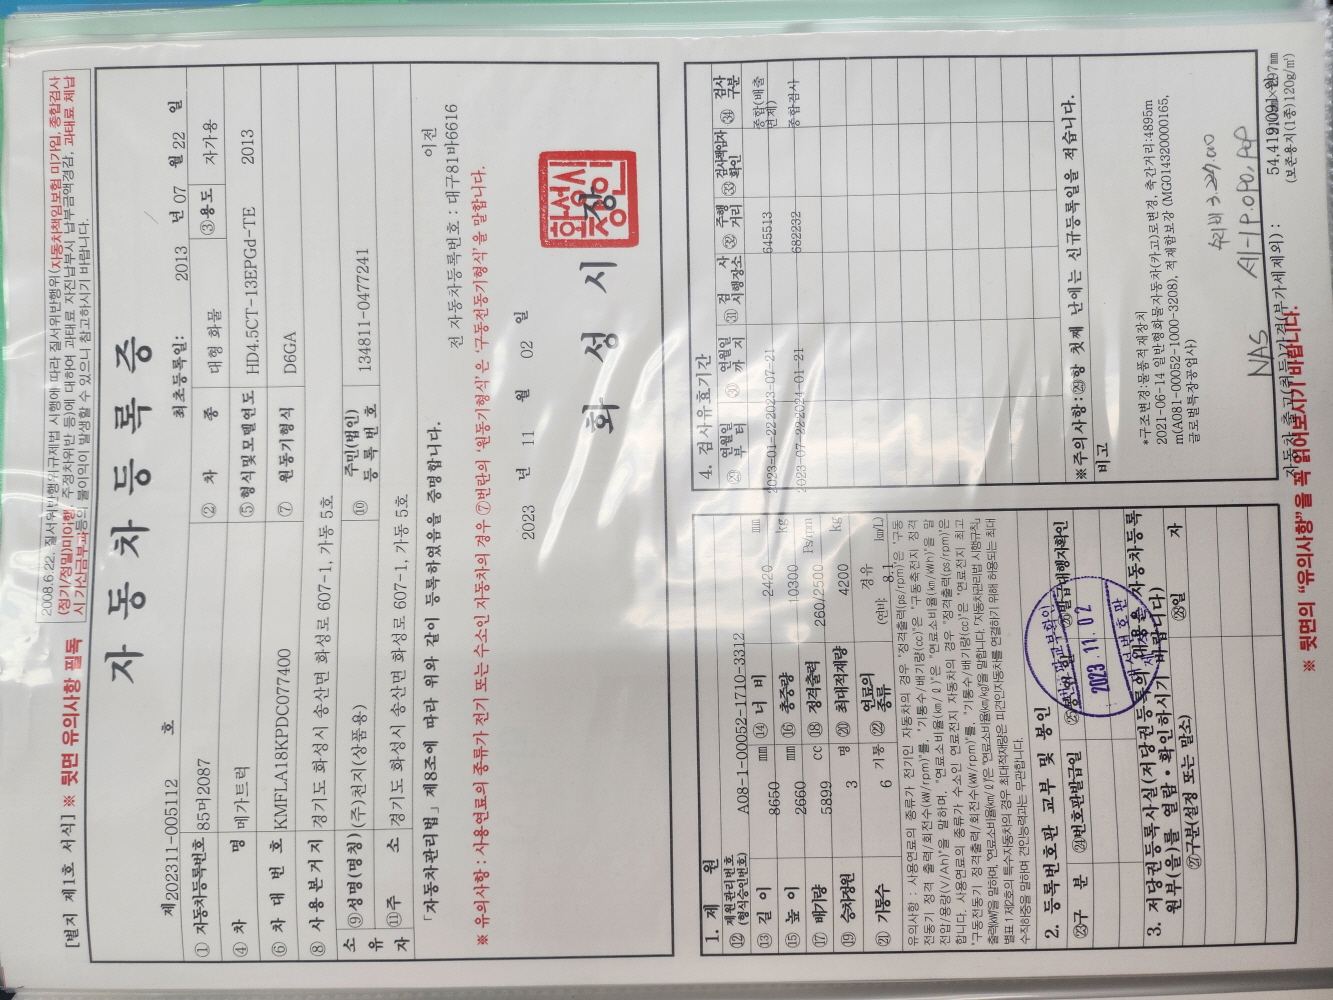 [별지 제1호 서식] ※ 뒷면 유의사항 필독
2008.6.22. 질서위반행위규제법 시행에 따라 질서위반행위(자동차책임보험 미가입, 종합검사
(정기/정밀)미이행, 주정차위반 등)에 대하여 과태료 자진납부시 납부금액경감, 과태료 체납
시 가산금부과등의 불이익이 발생할 수 있으니 참고하시기 바랍니다.
자 동 차 등 록 증
제202311-005112 호
최초등록일: 2013 년 07 월 22 일
① 자동차등록번호 85머2087 ② 차 종 대형 화물 ③용도 자가용
④ 차 명 메가트럭 ⑤형식및모델연도 HD4.5CT-13EPGd-TE 2013
⑥ 차 대 번 호 KMFLA18KPDC077400 ⑦ 원동기형식 D6GA
⑧ 사용본거지 경기도 화성시 송산면 화성로 607-1, 가동 5호
소유자 ⑨성명(명칭) (주)천지(상품용) ⑩ 주민(법인)등록번호 134811-0477241
⑪주 소 경기도 화성시 송산면 화성로 607-1, 가동 5호
「자동차관리법」제8조에 따라 위와 같이 등록하였음을 증명합니다. 이전
전 자동차등록번호 : 대구81바6616
※ 유의사항 : 사용연료의 종류가 전기 또는 수소인 자동차의 경우 ⑦번란의 '원동기형식'은 '구동전동기형식'을 말합니다.
2023 년 11 월 02 일
화 성 시 장
화성시장인
1. 제 원
⑫ 제원관리번호(형식승인번호) A08-1-00052-1710-3312
⑬ 길 이 8650 mm ⑭ 너 비 2420 mm
⑮ 높 이 2660 mm ⑯ 총중량 10300 kg
⑰ 배기량 5899 cc ⑱ 정격출력 260/2500 Ps/rpm
⑲ 승차정원 3 명 ⑳ 최대적재량 4200 kg
㉑ 기통수 6 기통 ㉒ 연료의 종류 경유 (연비 8.1 km/L)
유의사항 : 사용연료의 종류가 전기인 자동차의 경우 "정격출력(ps/rpm)"은 "구동
전동기 정격 출력/회전수(kW/rpm)"를, "기통수/배기량(cc)"은 "구동축전지 정격
전압/용량(V/Ah)"을 말하며, "연료소비율(km/ℓ)"은 "연료소비율(km/kWh)"을 말
합니다. 사용연료의 종류가 수소인 연료전지 자동차의 경우 "정격출력(ps/rpm)"은
"구동전동기 정격출력/회전수(kW/rpm)"를, "기통수/배기량(cc)"은 "연료전지 최고
출력(kW)"을 말하며, "연료소비율(km/ℓ)"은 "연료소비율(km/kg)"을 말합니다. 「자동차관리법 시행규칙」
별표 1 제2호의 특수자동차의 경우 최대적재량은 피견인자동차를 연결하기 위해 허용되는 최대
수직하중을 말하며 견인능력과는 무관합니다.
2. 등록번호판 교부 및 봉인
㉓구 분 ㉔번호판발급일 ㉕봉인일 ㉖발급대행자확인
2023. 11. 02
3. 저당권등록사실(저당권등록의 내용은 자동차등록
원부(을)를 열람·확인하시기 바랍니다)
㉗구분(설정 또는 말소) ㉘일 자
4. 검사유효기간
㉙ 연월일부터 ㉚ 연월일까지 ㉛ 검사시행장소 ㉜ 주행거리 ㉝ 검사책임자확인 ㉞ 검사구분
2023-01-22 2023-07-21 645513 종합(배출면제)
2023-07-22 2024-01-21 682232 종합검사
※주의사항:㉙항 첫째 난에는 신규등록일을 적습니다.
비고
*구조변경:물품적재장치
2021-06-14 일반형화물자동차(카고)로변경, 축간거리:4895m
m(A081-00052-1000-3208), 적재함보강 (MG014320000165,
글로벌특장공업사)
NAS
자동차 출고(취득)가격(부가세제외) : 54,419,091 원
※ 뒷면의 "유의사항"을 꼭 읽어보시기 바랍니다.
(보존용지(1종)120g/㎡)